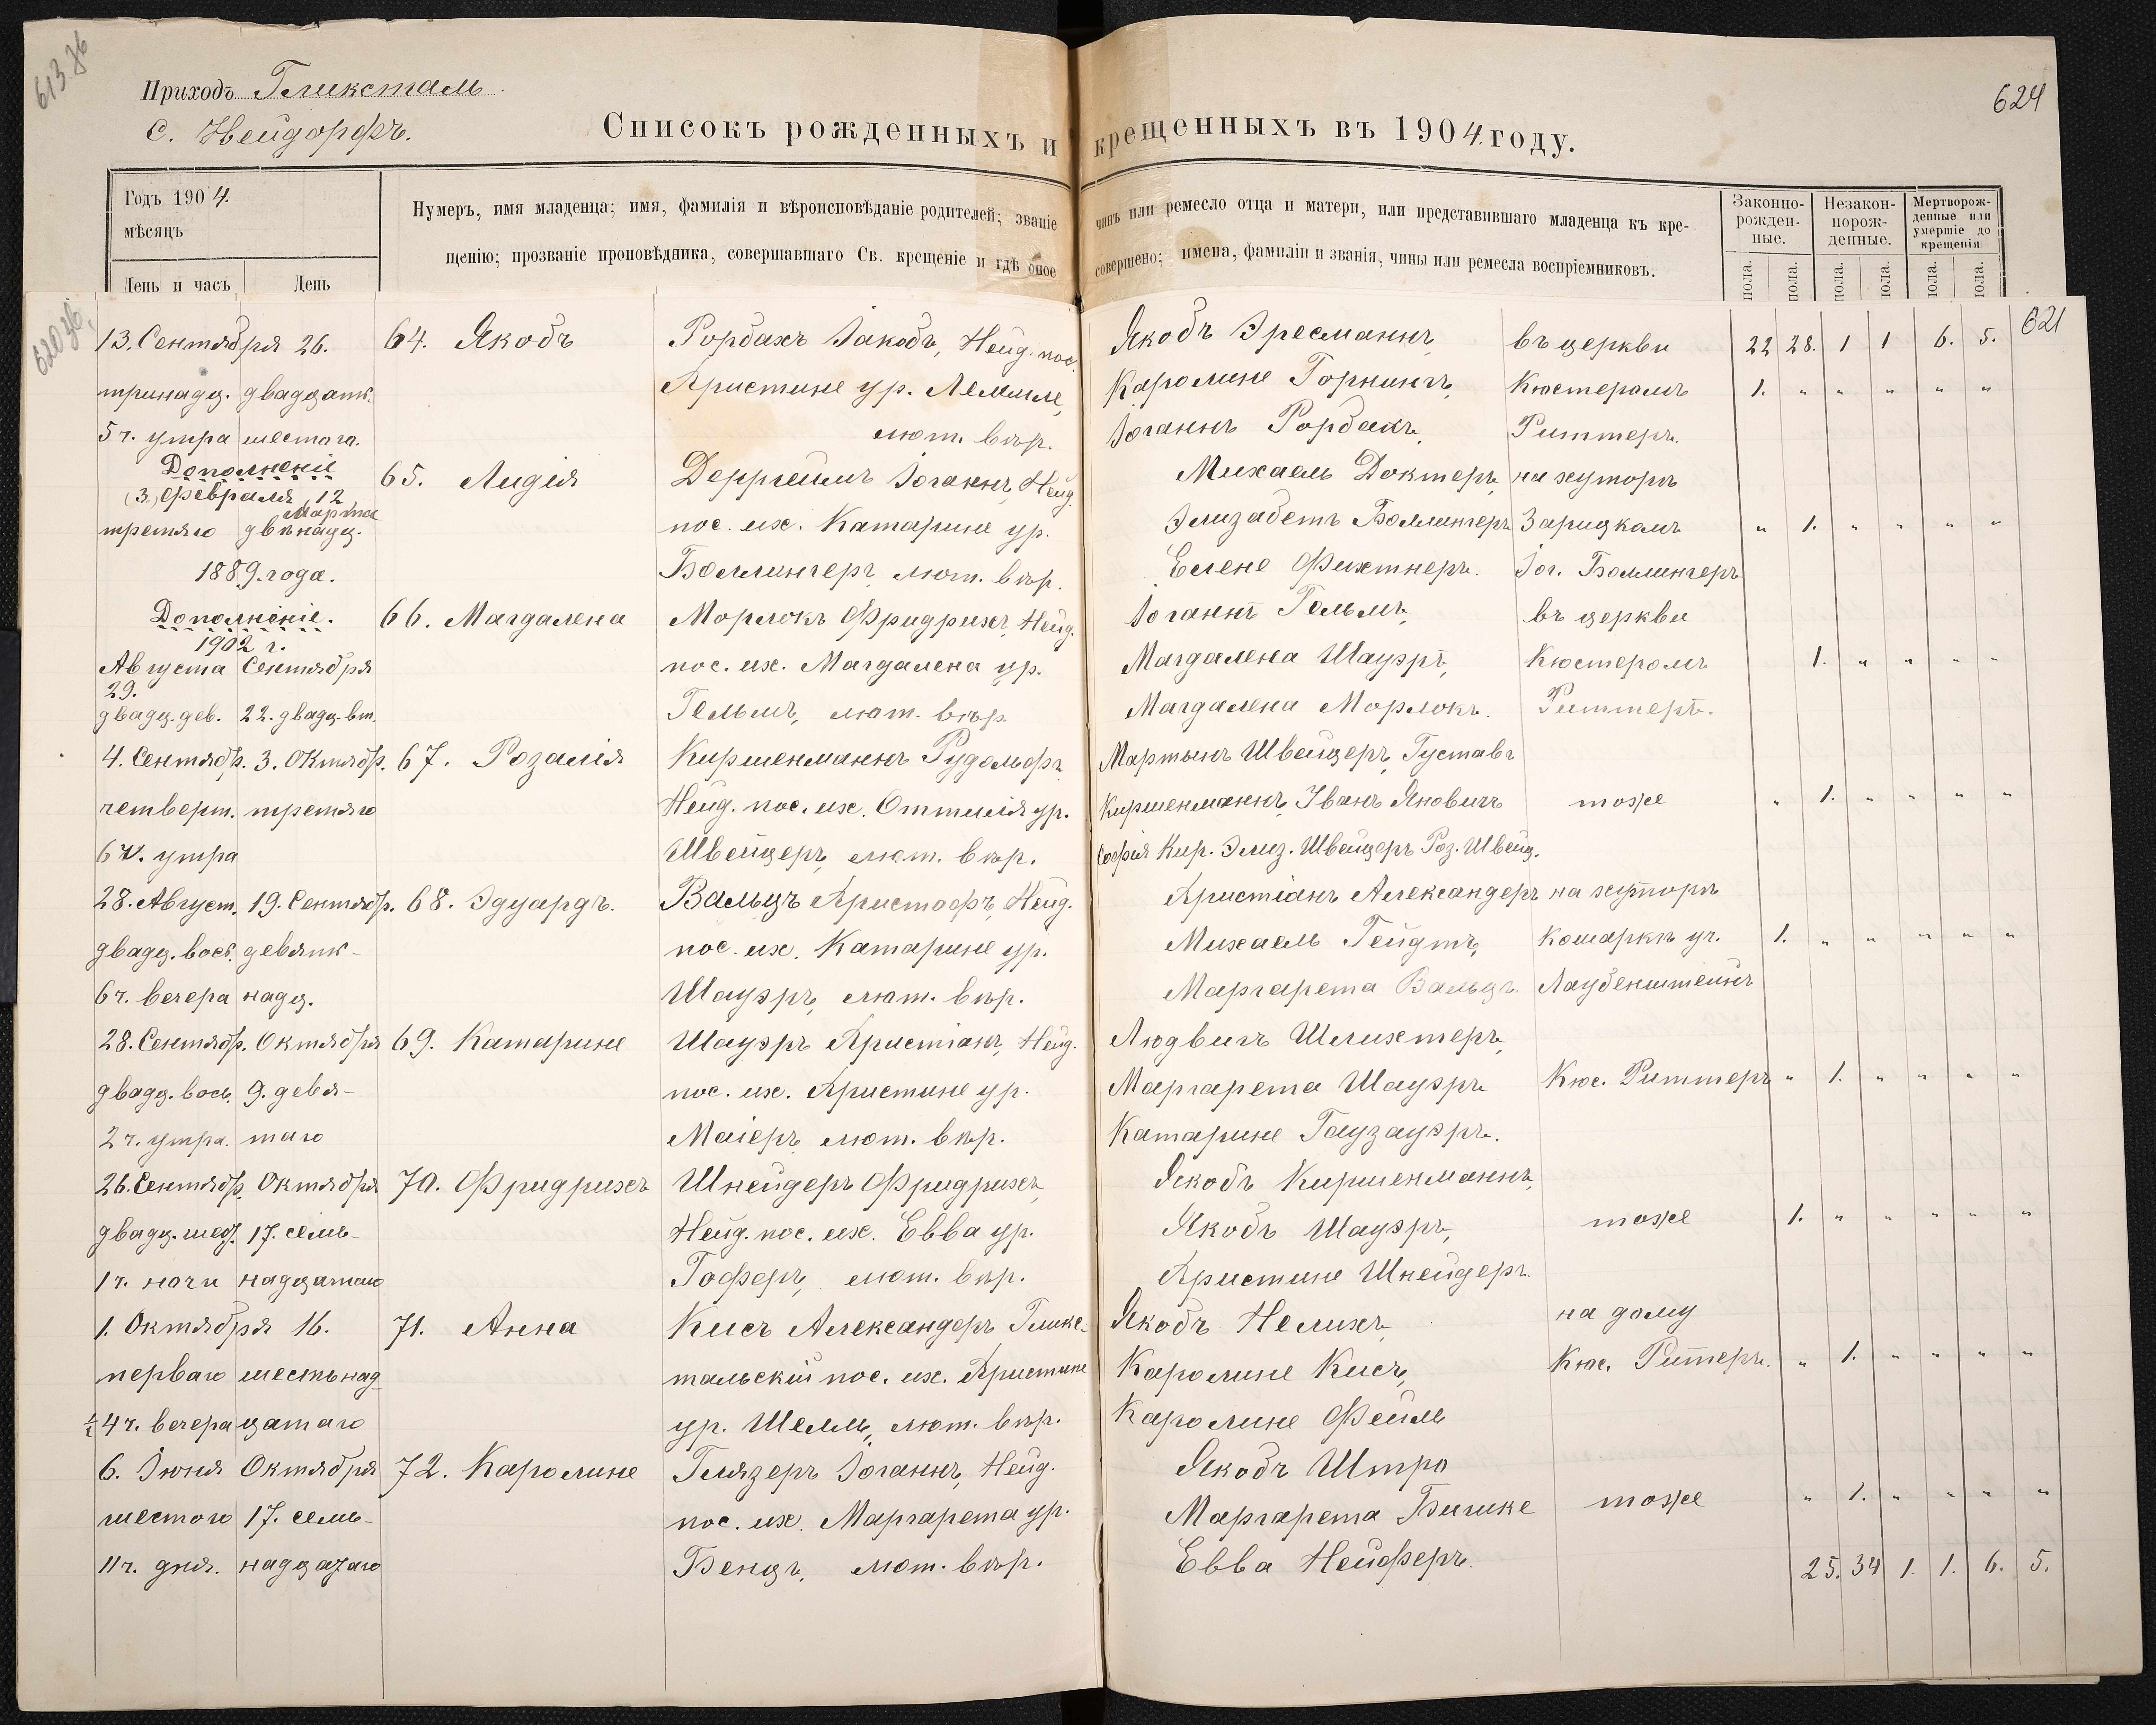 613 об
Приходъ Гликсталь
624
с. Нейдорфъ.
Списокъ рожденныхъ и крещенныхъ въ 1904. году.
Годъ 1904.
мѣсяцъ
День и часъ День
Нумеръ, имя младенца; имя, фамилія и вѣроисповѣданіе родителей; званіе чинъ или ремесло отца и матери, или представившаго младенца къ кре-
щенію; прозваніе проповѣдника, совершавшаго Св. крещеніе и гдѣ оное совершено; имена, фамиліи и званія, чины или ремесла воспріемниковъ.
Законно-
рожден-
ные.
Незакон-
норож-
денные.
Мертворож-
денные или
умершіе до
крещенія
пола. пола. пола. пола. пола. пола.
620 об.
621
13. Сентября 26. 64. Якобъ Рорбахъ Іакобъ, Нейд. пос. Якобъ Эресманнъ, въ церкви 22 28. 1 1 6. 5.
тринадц. двадцать Христине ур. Лемпле, Каролине Горнингъ, Кюстеромъ 1. " " " " "
5 ч. утра шестого. лют. вѣр. Іоганнъ Рорбахъ, Риттеръ.
Дополненіе 65. Лидія Дерргеймъ Іоганнъ, Нейд. Михаель Доктеръ, на хуторѣ
(3.) февраля 12 Марта
третяго двѣнадц. пос. их. Катарине ур. Элизабетъ Боллингеръ Зарицкомъ " 1. " " " "
1889. года. Боллингеръ, лют. вѣр. Елене Фихтнеръ. Іог. Боллингеръ
Дополненіе. 66. Магдалена Морлокъ Фридрихъ, Нейд. Іоганнъ Гельмъ, въ церкви
1902 г.
Августа Сентября пос. их. Магдалена ур. Магдалена Шауэръ, Кюстеромъ 1. " " " "
29.
двадц. дев. 22. двадц. вт. Гельмъ, лют. вѣр. Магдалена Морлокъ. Риттеръ.
4. Сентябр. 3. Октябр. 67. Розалія Киршенманнъ Рудольфъ, Мартынъ Швейцеръ, Густавъ
четверт. третяго Нейд. пос. их. Оттилія ур. Киршенманнъ, Іванъ Яновичъ тоже " 1. " " " "
6 ч. утра Швейцеръ, лют. вѣр. Софія Кир. Элиз. Швейцеръ Роз. Швейц.
28. Август. 19. Сентябр. 68. Эдуардъ. Вальцъ Христофъ, Нейд. Христіанъ Александеръ на хуторѣ
двадц. вось. девятн- пос. их. Катарине ур. Михаель Гейдтъ, Кошаркѣ уч. 1. " " " " "
6 ч. вечера надц. Шауэръ, лют. вѣр. Маргарета Вальцъ. Лаубенштейнъ
28. Сентябр. Октября 69. Катарине Шауэръ Христіанъ, Нейд. Людвигъ Шлихтеръ,
двадц. вось. 9. девя- пос. их. Христине ур. Маргарета Шауэръ Кюс. Риттеръ " 1. " " " "
2 ч. утра. таго Маіеръ, лют. вѣр. Катарине Гаузауэръ.
26. Сентябр. Октября 70. Фридрихъ Шнейдеръ Фридрихъ, Якобъ Киршенманнъ,
двадц. шест. 17. семь- Нейд. пос. их. Евва ур. Якобъ Шауэръ, тоже 1. " " " " "
1 ч. ночи надцатаго Гоферъ, лют. вѣр. Христине Шнейдеръ.
1. Октября 16. 71. Анна Кисъ Александеръ Гликс- Якобъ Нелихъ, на дому
перваго шестьнад- тальскій пос. их. Христине Каролине Кисъ, Кюс. Ритеръ. " 1. " " " "
½ 4 ч. вечера цатаго ур. Шелль, лют. вѣр. Каролине Фейль
6. Іюня Октября 72. Каролине Глязеръ Іоганнъ, Нейд. Якобъ Штро
шестого 17. семь- пос. их. Маргарета ур. Маргарета Бишке тоже " 1. " " " "
11 ч. дня. надцатаго Бенцъ, лют. вѣр. Евва Нейферъ. 25. 34 1. 1. 6. 5.